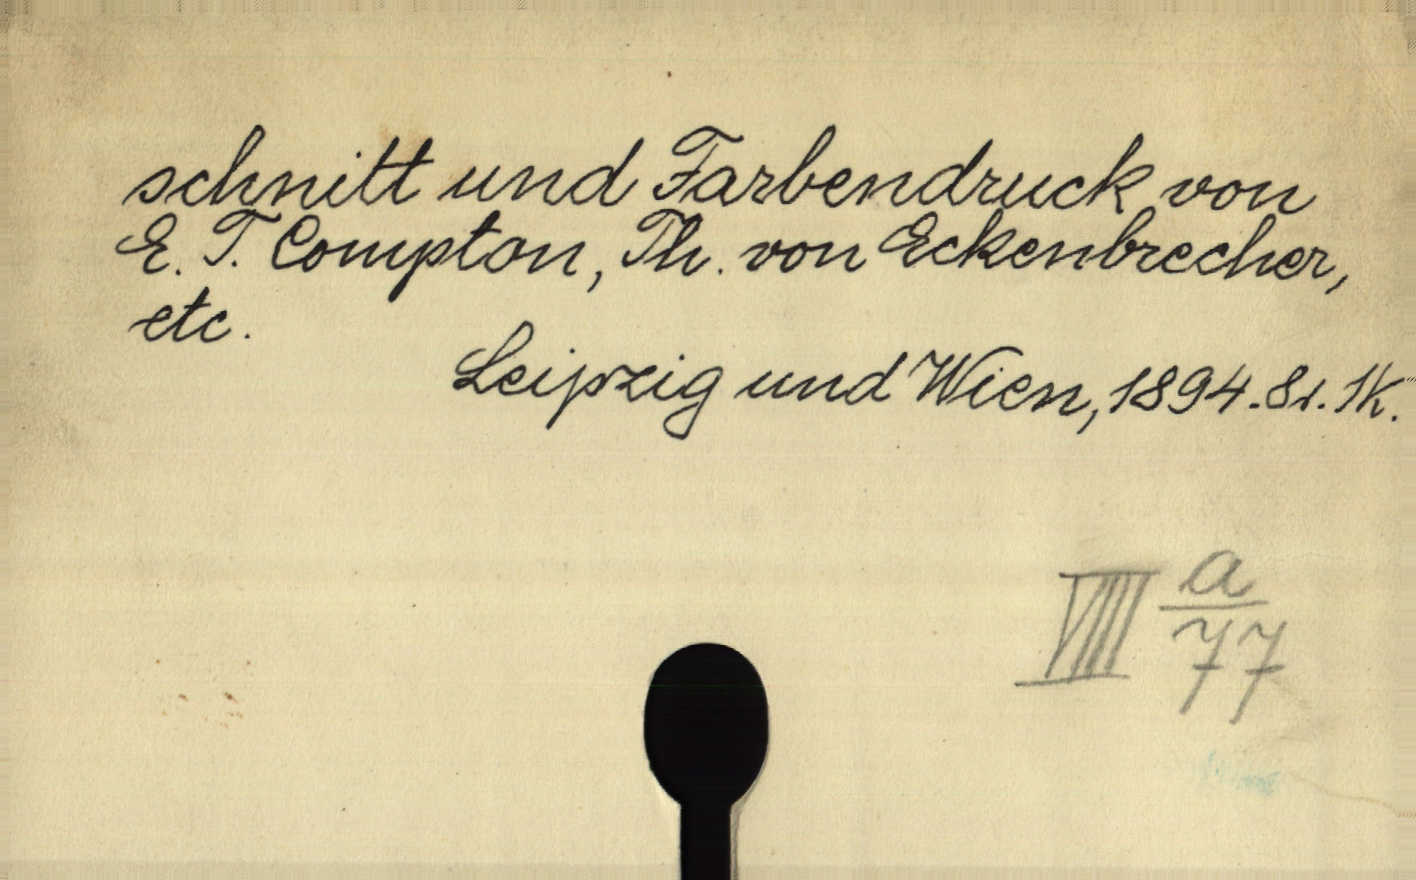 schnitt und Farbendruck von
E. T. Compton, Th. von Eckenbrecher,
etc.
Leipzig und Wien, 1894. 8r. 1K.
VIII a/77